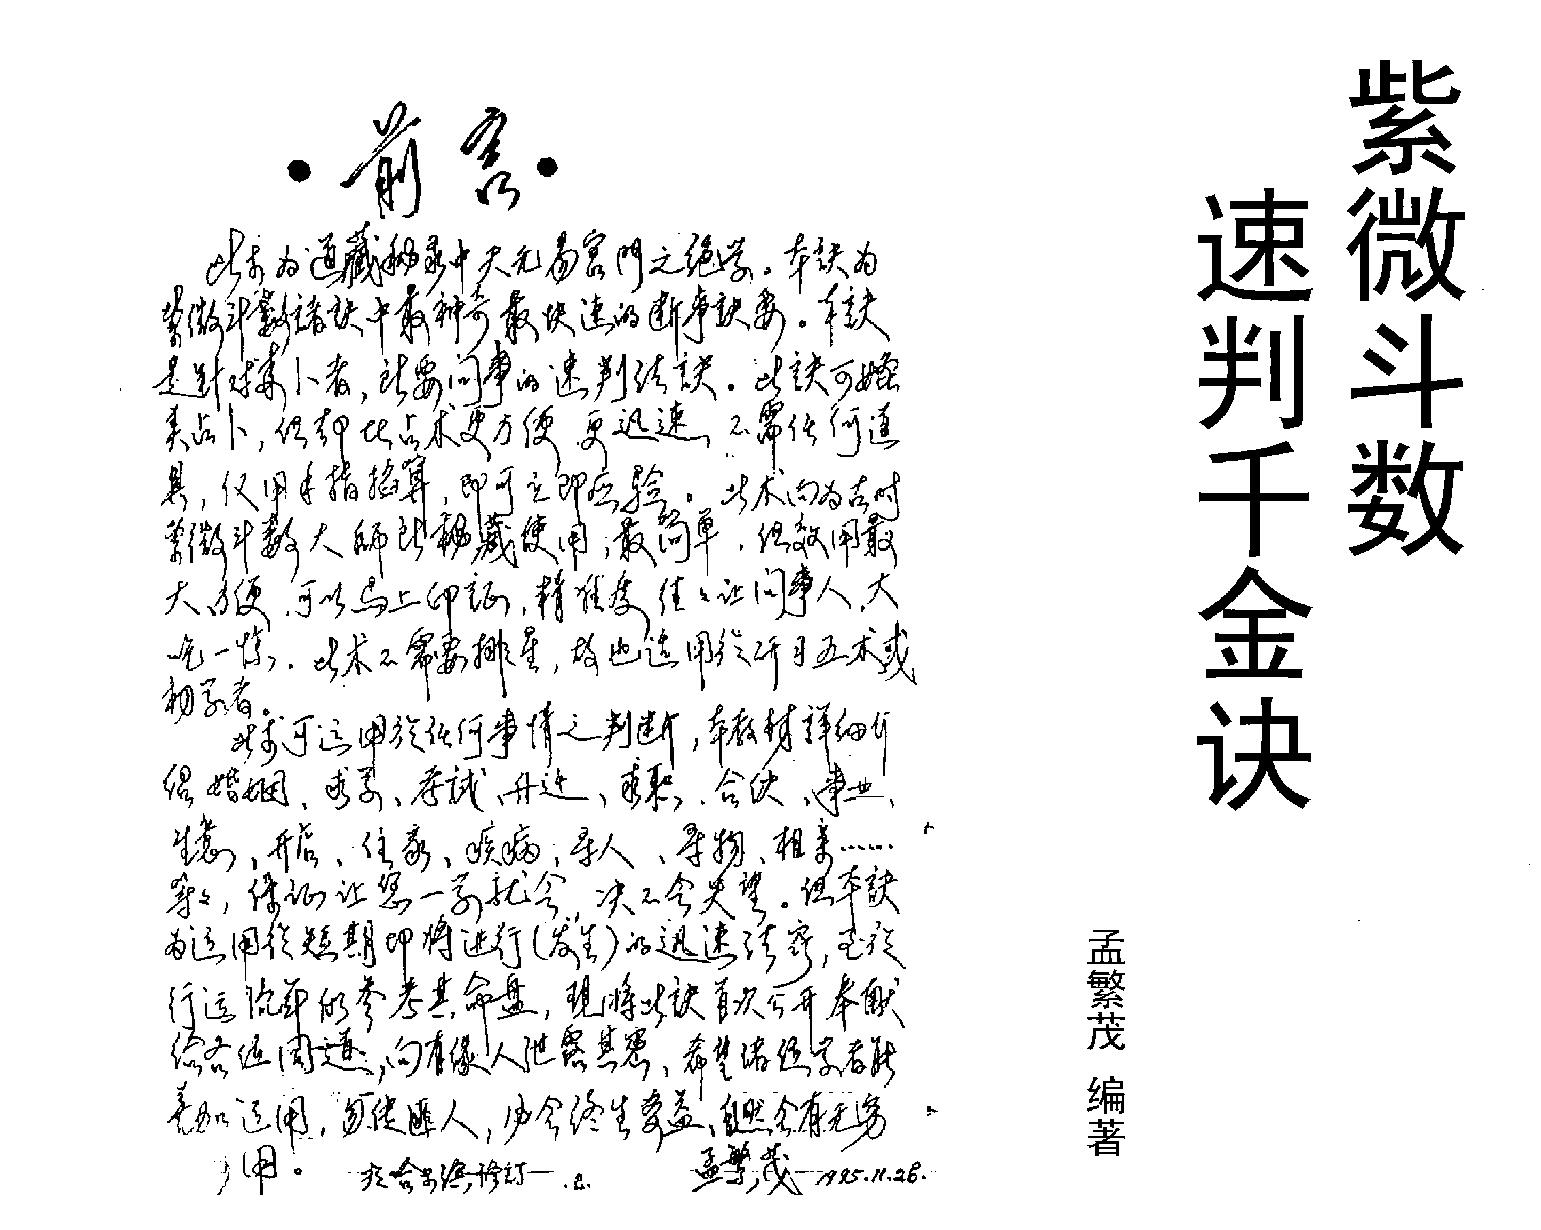 紫微斗数
速判千金诀
孟繁茂 编著
·前言·
此术为道藏秘录中天元易宗門之绝学。本訣为
紫微斗數諸訣中最神奇最快速的断事訣要。本訣
是針对来卜者，所要问事的速判法訣。此訣可歸
类占卜，但却比占术更方便，更迅速，不需任何道
具，仅用手指掐算，即可立即应验。此术向为古时
紫微斗數大師所秘藏使用，最简单，但效用最
大，方便，可以马上印証，精准度往往让问事人，大
吃一惊，此术不需要排星，故也适用於研习五术或
初学者。
此术可运用於任何事情之判断，本教材詳细介
绍婚姻、求学、考試、升迁、求职、合伙、事业、
生意、开店、住家、疾病、寻人、寻物、相亲……
等等，保证让您一学就会，决不会失望。但本訣
为运用於短期即将进行（发生）的迅速法窍，至於
行运流年的参考其命盘，现将此訣首次公开奉献
给各位同道，向有缘人泄露其密，希望诸位学者能
善加运用，勿使匪人，仍会终生受益，自然会有无穷
用。
於哈尔滨修订 孟繁茂 1995.11.28.